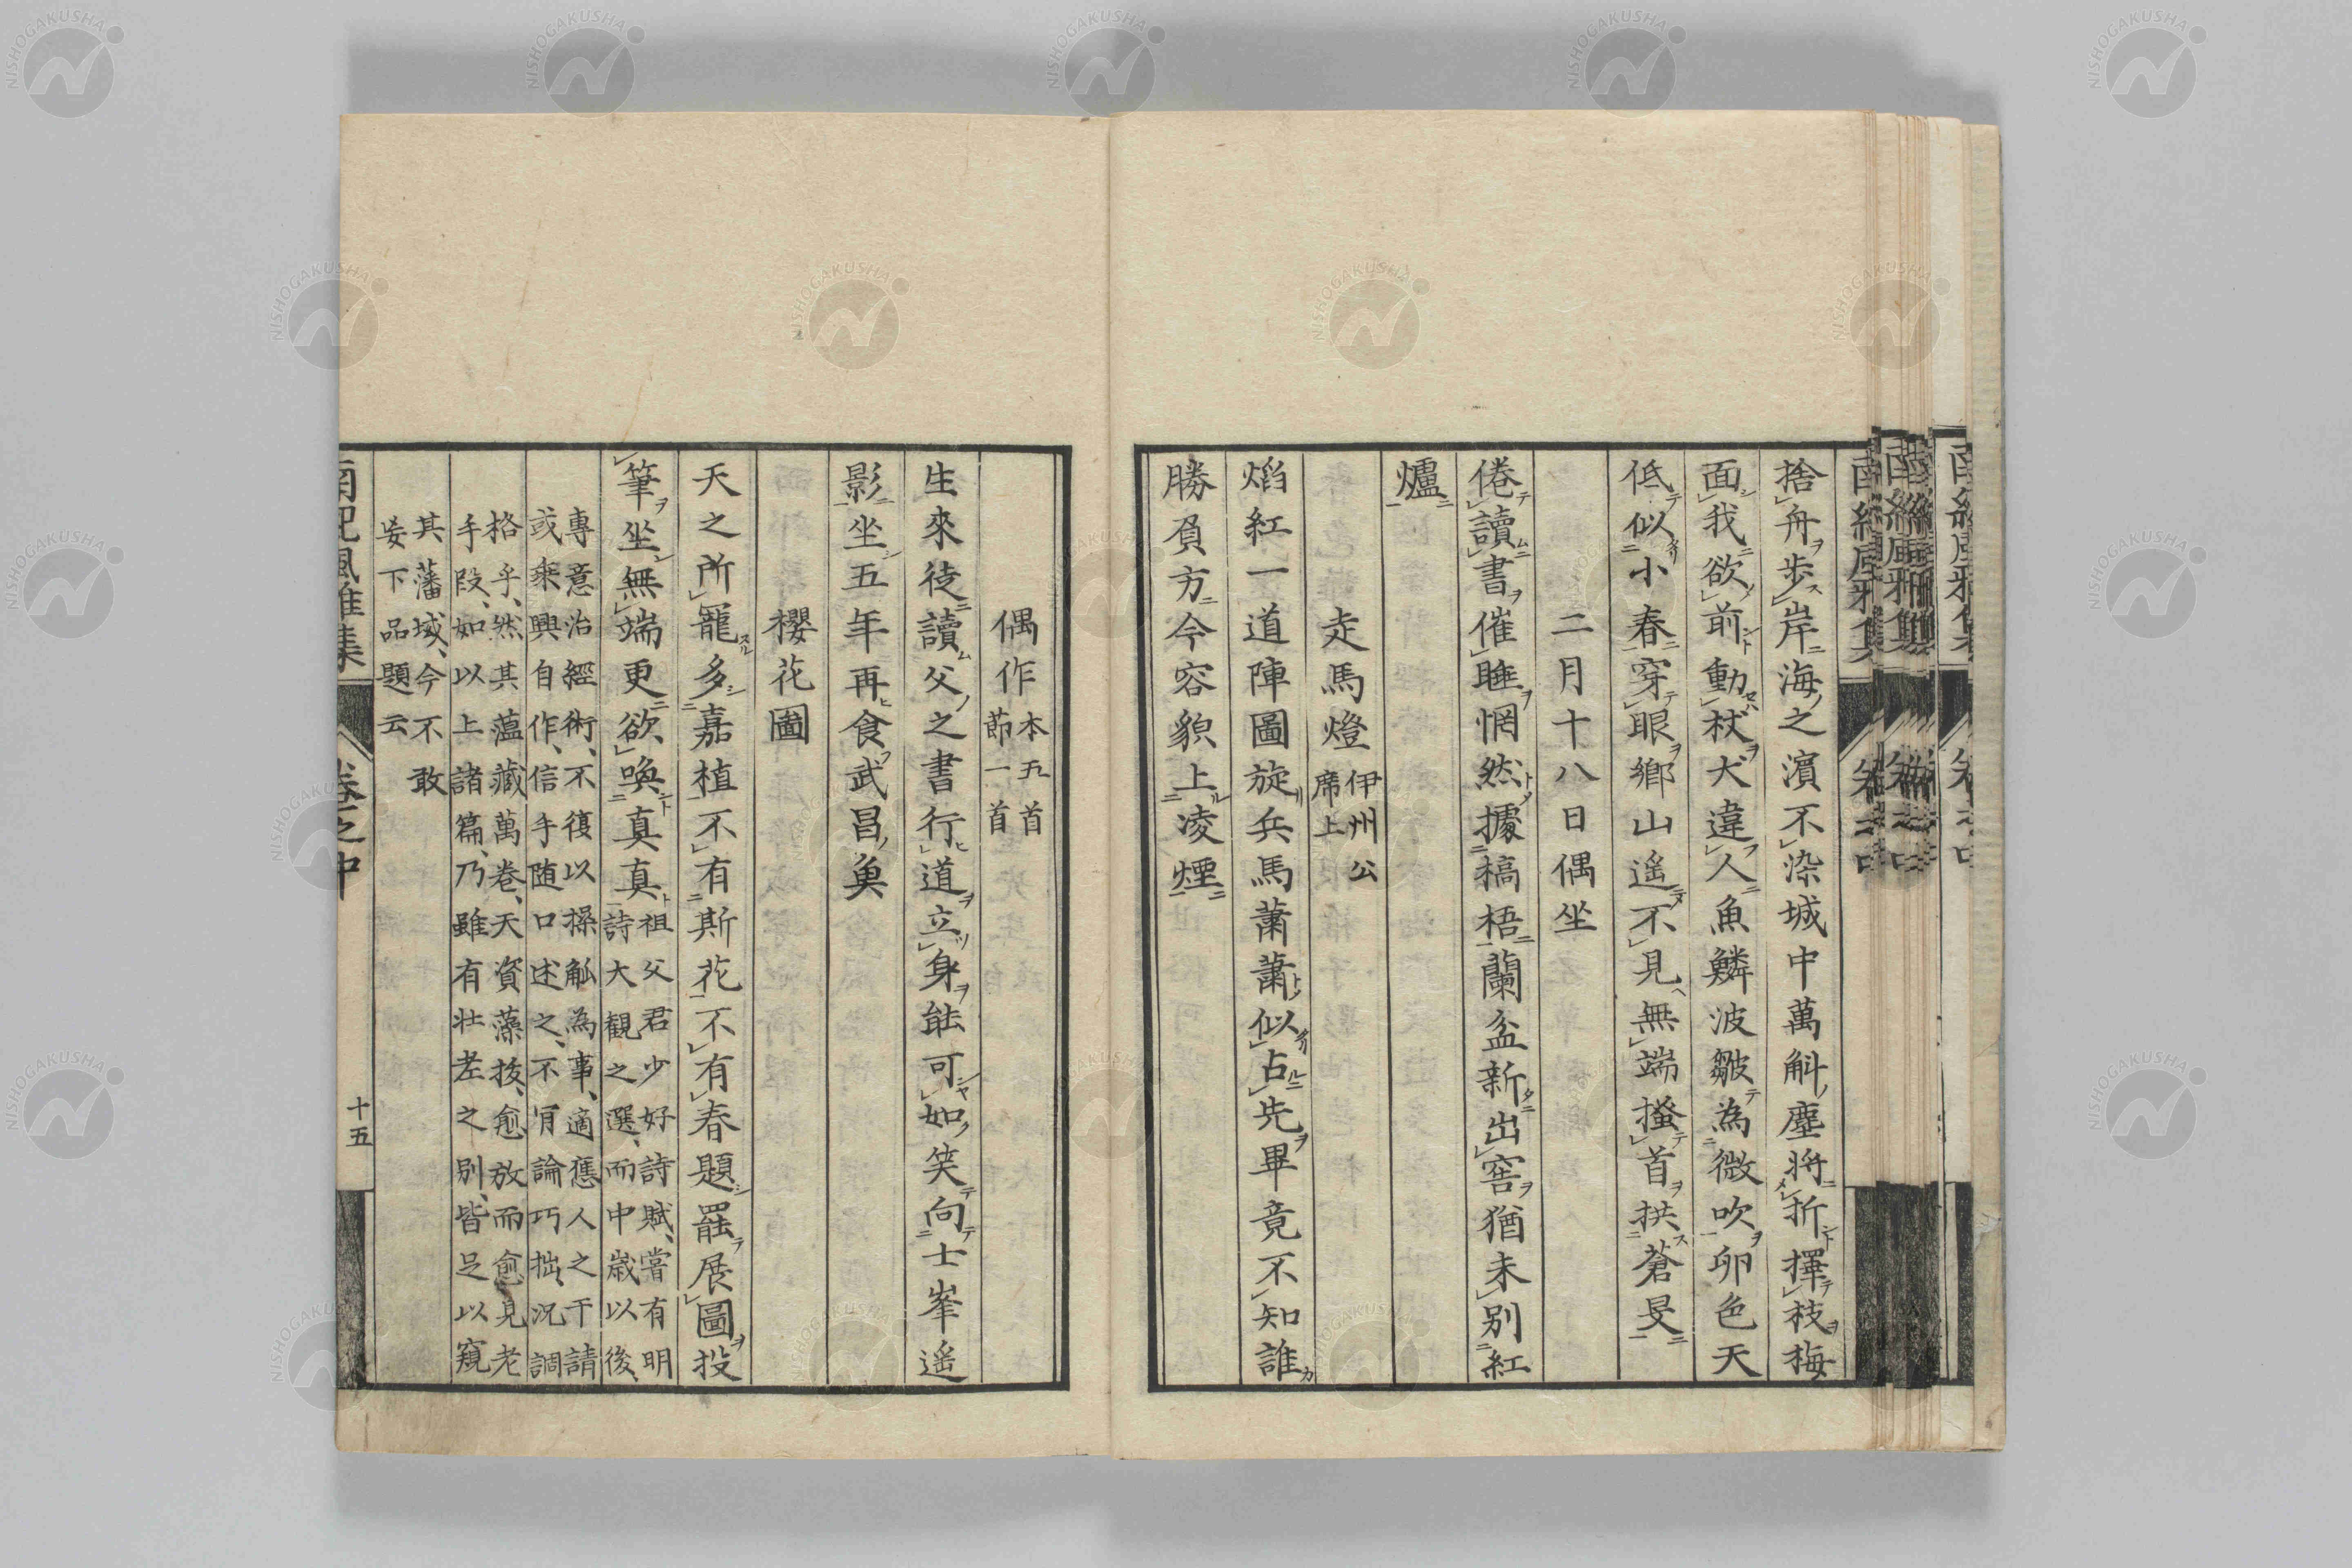 捨舟歩岸海之濵不染城中萬斛塵將折擇枝梅
面我欲前動杖犬違人魚鱗波皺為微吹卵色天
低似小春穿眼鄉山遥不見無端搔首拱蒼旻
二月十八日偶坐
倦讀書催睡惘然據槁梧蘭盆新出窖猶未别紅
爐
走馬燈 伊州公席上
焰紅一道陣圖旋兵馬蕭蕭似占先畢竟不知誰
勝負方今容貌上凌煙
偶作 本五首節一首
生來徒讀父之書行道立身能可如笑向士峯遥
影坐五年再食武昌魚
櫻花圖
天之所寵多嘉植不有斯花不有春題罷展圖投
筆坐無端更欲喚真真
祖父君少好詩賦、嘗有明
詩大觀之選、而中歳以後、
專意治經術、不復以操觚為事、適應人之干請
或乘興自作、信手随口述之、不肎論巧拙、況調
格乎、然其蘊藏萬卷、天資藻拔、愈放而愈見老
手段、如以上諸篇、乃雖有壮老之別、皆足以窺
其藩域、今不敢
妄下品題云
南紀風雅集 卷之中 十五
NISHOGAKUSHA